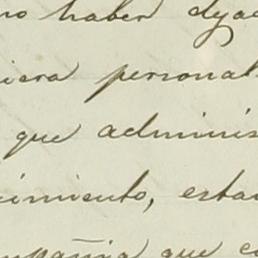 no haber dejad
iera personal
que adminis
cimiento, esta
mpañia que c